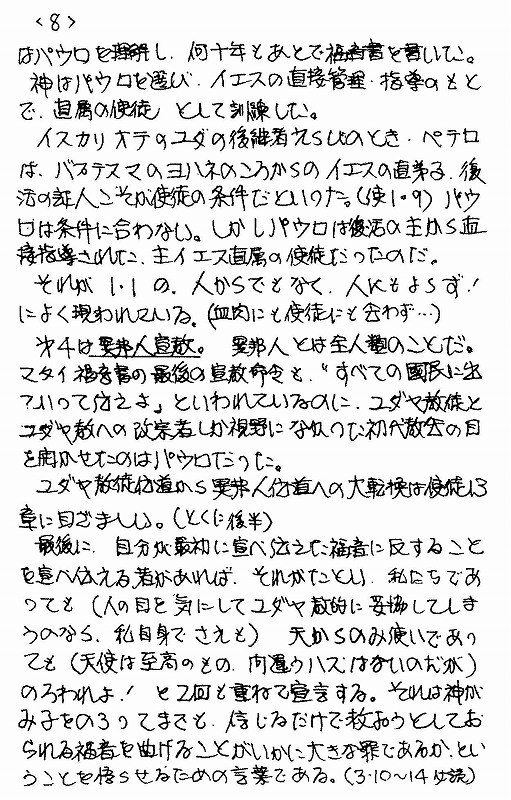 <8>
はパウロを理解し、何十年もあとで福音書を書いた。
神はパウロを選び、イエスの直接管理・指導のもと
で、直属の使徒 として訓練した。
イスカリオテのユダの後継者えらびのとき、ペテロ
は、バプテスマのヨハネのころからのイエスの直弟子、復
活の証人こそが使徒の条件だといった。(使1・9) パウ
ロは条件に合わない。しかしパウロは復活の主から直
接指導された、主イエス直属の使徒だったのだ。
それが1・1の、人からでもなく、人にもよらず!
によく現われている。(血肉にも使徒にも会わず…)
第4は異邦人宣教。 異邦人とは全人類のことだ。
マタイ福音書の最後の宣教命令も、"すべての國民に出
ていって伝えよ」といわれているのに、ユダヤ教徒と
ユダヤ教への改宗者しか視野になかった初代教会の目
を開かせたのはパウロだった。
ユダヤ教徒伝道から異邦人伝道への大転換は使徒13
章に目ざましい。(とくに後半)
最後に、自分が最初に宣べ伝えた福音に反すること
を宣べ伝える者があれば、それがたとい、私たちであ
っても (人の目を気にしてユダヤ教的に妥協してしま
うのなら、私自身でさえも) 天からのみ使いであっ
ても (天使は至高のもの、間違うハズはないのだが)
のろわれよ! と2回も重ねて宣言する。それは神が
み子をのろってまでも、信じるだけで救おうとしてお
られる福音を曲げることがいかに大きな罪であるか、とい
うことを悟らせるための言葉である。(3・10~14必読)